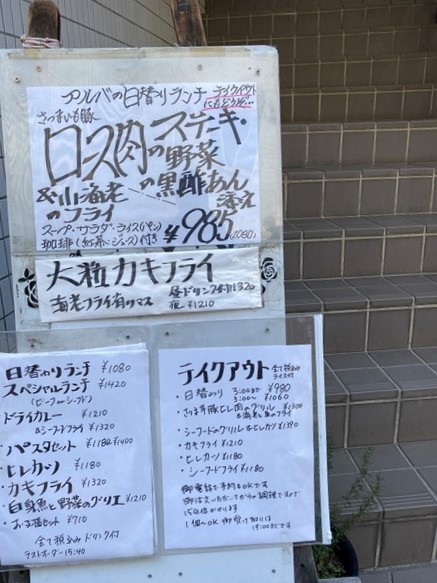 アルバの日替りランチ
テイクアウト
にもどうぞ…
さつまいも豚
ロース肉のステーキ・
野菜
の黒酢あん
添え
&小海老
のフライ
スープ・サラダ・ライス(パン)
珈琲(紅茶・ジュース)付き ¥985(1080)
大粒カキフライ
海老フライ有りマス
昼ドリンク付1320
夜 ¥1210
日替わりランチ ¥1080
スペシャルランチ ¥1420
(ビーフorシーフド)
・ドライカレー ¥1210
&シーフード ¥1320
・パスタセット ¥1182 ¥1400
・ヒレカツ ¥1180
・カキフライ ¥1320
・白身魚と野菜のグリエ ¥1210
・お子様セット ¥710
全て税込み ドリンク付
ラストオーダー15:40
テイクアウト 全て税込み
ライス付
・日替わり 3:00まで ¥980
3:00〜 ¥1060
・さつま芋豚ヒレ肉のグリル ¥1300
&海老と魚のフライ
・シーフードのグリル&ヒレカツ ¥1390
・カキフライ ¥1210
・ヒレカツ ¥1180
・シーフードフライ ¥1180
御電話で予約もOKです
御注文いただいてからの調理ですので
15分位かかります
1個〜OK 御受け取りは
19:00までです